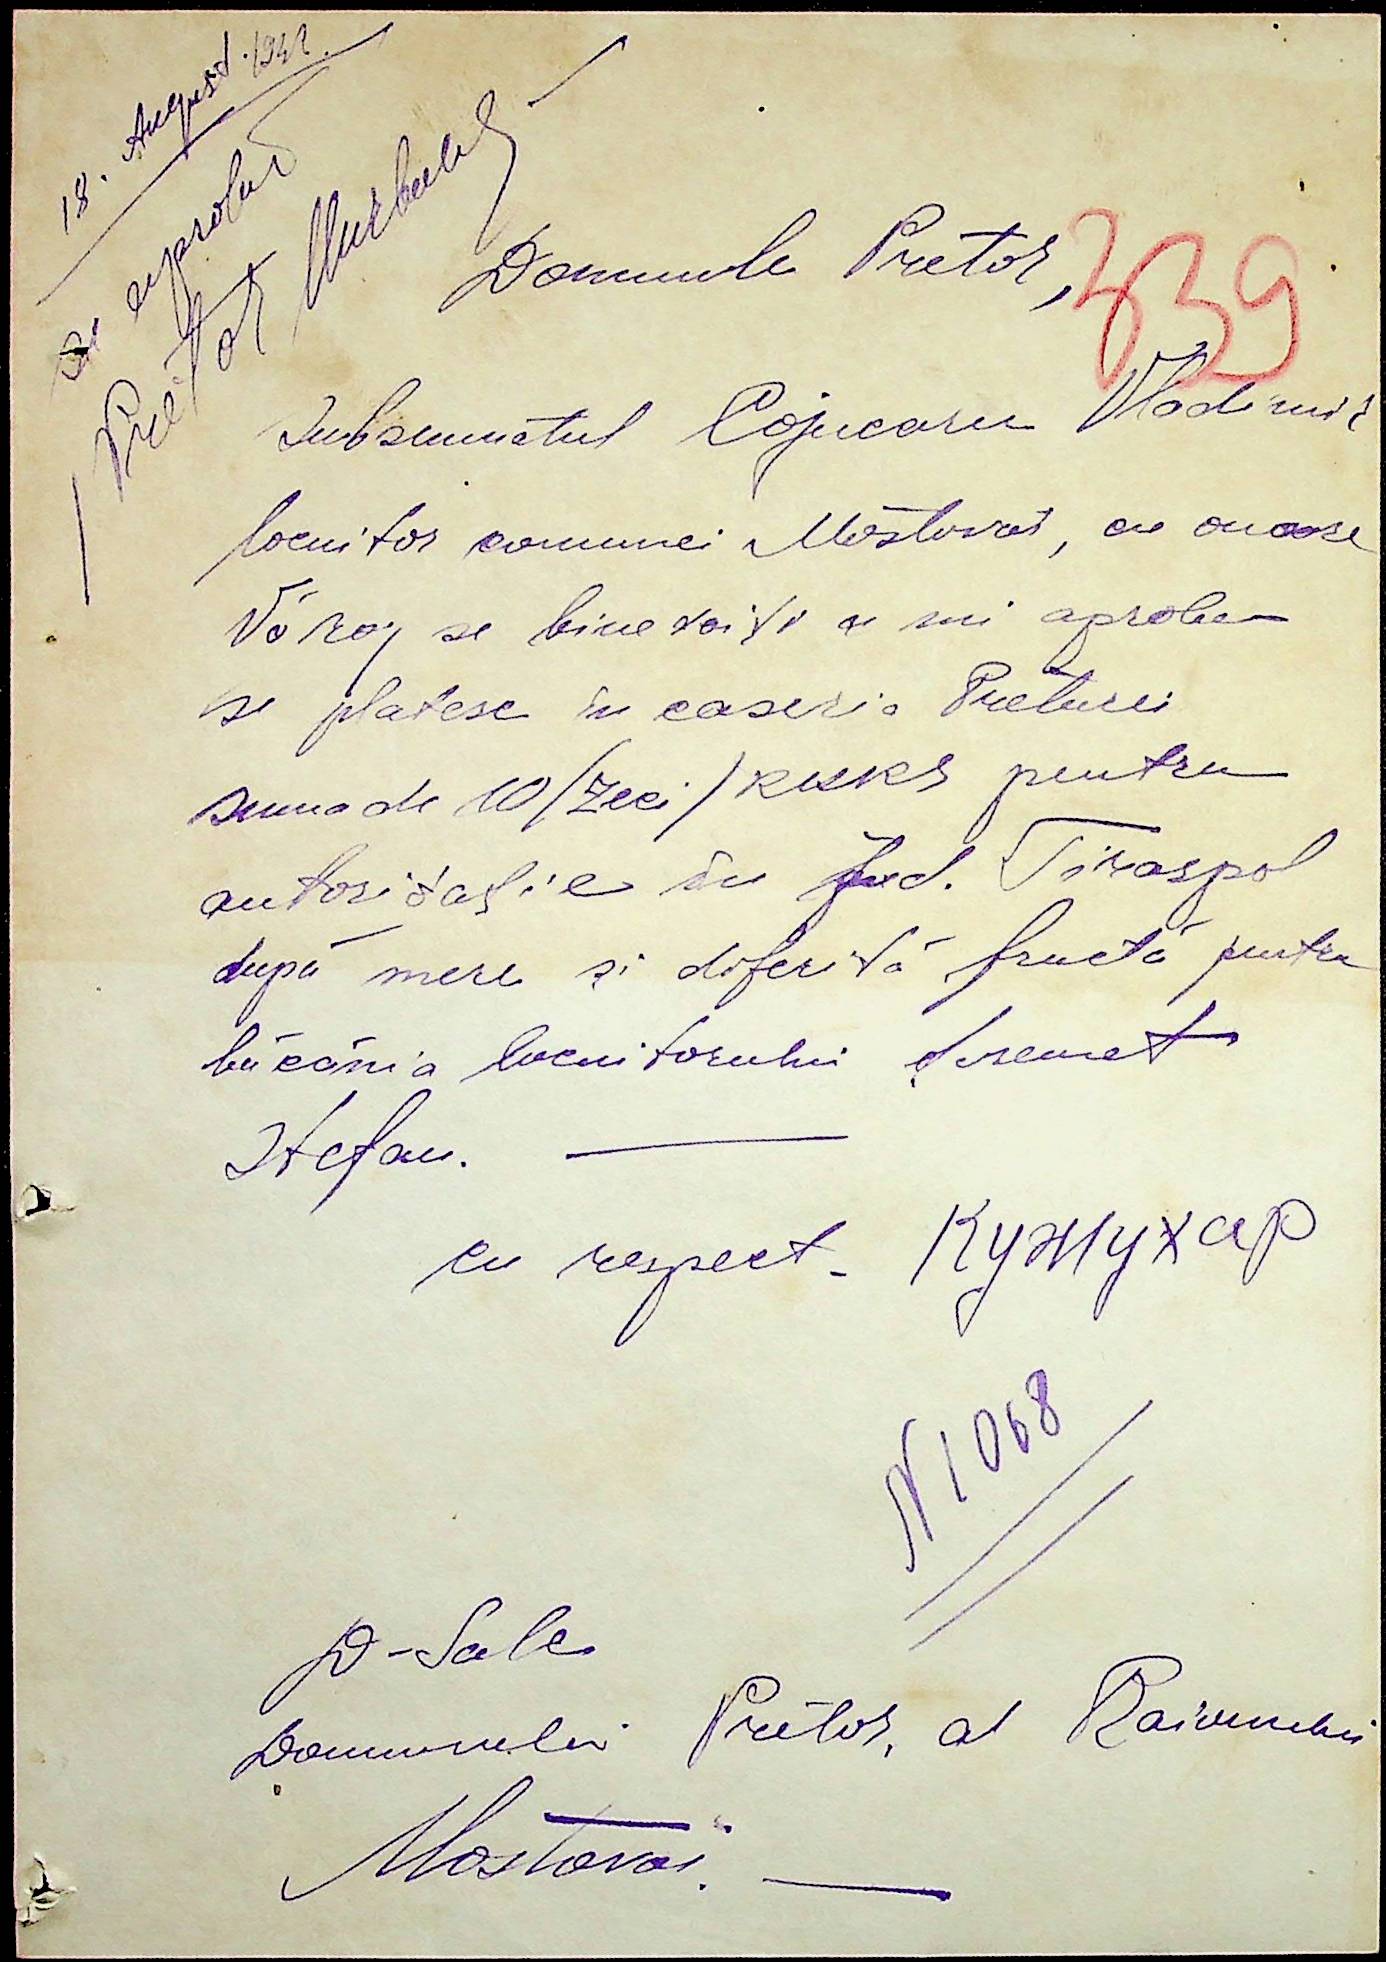 18. August. 1942.
se aprobă
Pretor
Domnule Pretor,
339
Subsemnatul Cojucaru Vladimir
locuitor comunei Mostovoi, cu onoare
Vă rog se binevoiți a mi aproba
se platesc în caseria Preturei
suma de 10/zeci/RKKS pentru
autorizație în jud. Tiraspol
după mere și diferită fructă pentru
băcănia locuitorului
Stefan.
cu respect - Кужухар
N 1068
D-Sale
Domnului Pretor, al Raionului
Mostovoi.